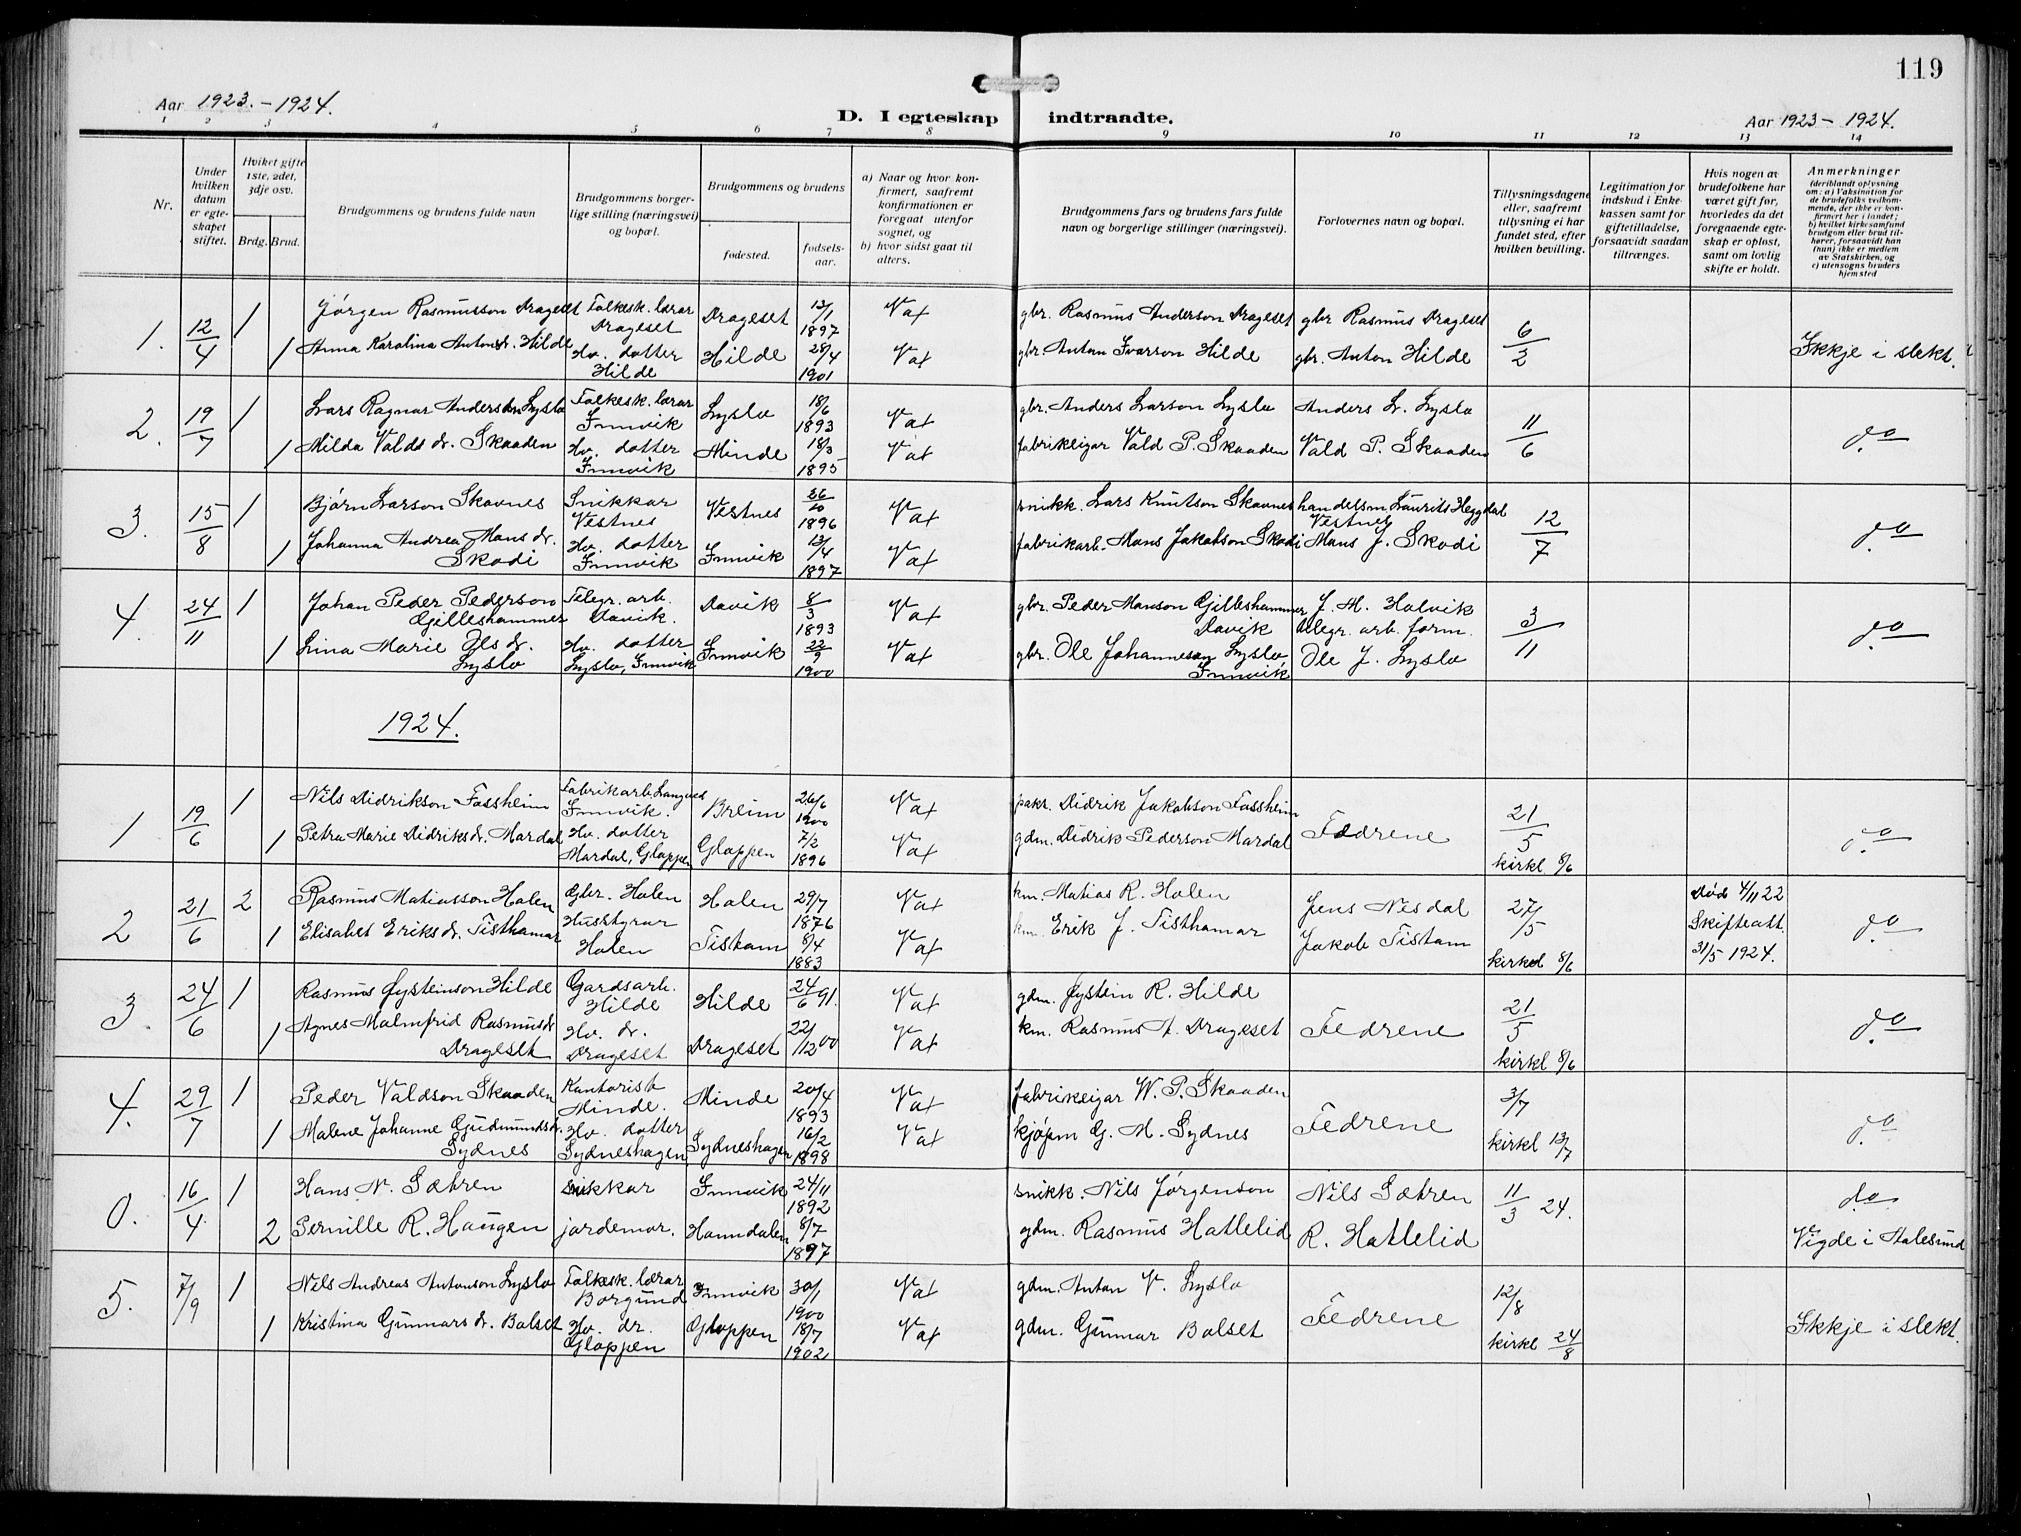 119
Aar 1923.-1924.
D. I egteskap indtraadte.
Aar 1923-1924.
1 2 3 4 5 6 7 8 9 10 11 12 13 14
Nr.
Under hvilken datum er egteskapet stiftet.
Hvilket gifte 1ste, 2det, 3dje osv.
Brdg. Brud.
Brudgommens og brudens fulde navn
Brudgommens borgerlige stilling (næringsvei) og bopæl.
Brudgommens og brudens
fødested.
fødselsaar.
a) Naar og hvor konfirmert, saafremt konfirmationen er foregaat utenfor sognet, og
b) hvor sidst gaat til alters.
Brudgommens fars og brudens fars fulde navn og borgerlige stillinger (næringsvei).
Forlovernes navn og bopæl.
Tillysningsdagene eller, saafremt tillysning ei har fundet sted, efter hvilken bevilling.
Legitimation for indskud i Enkekassen samt for giftetilladelse, forsaavidt saadan tiltrænges.
Hvis nogen av brudefolkene har været gift før, hvorledes da det foregaaende egteskap er opløst, samt om lovlig skifte er holdt.
Anmerkninger (deriblandt oplysning om: a) Vaksination for de brudefolks vedkommende, der ikke er konfirmert her i landet; b) hvilket kirkesamfund brudgom eller brud tilhører, forsaavidt han (hun) ikke er medlem av Statskirken, og c) utensogns bruders hjemsted
1. 12/4 1 Jørgen Rasmusson Drageset Folkesk. lærar Drageset Drageset 13/1 1897 Vax gbr. Rasmus Anderson Drageset gbr Rasmus Drageset 6/2 Ikkje i slekt.
1 Anna Karolina Antonsdr. Hilde Hv. dotter Hilde Hilde 28/4 1901 Vax gbr. Anton Ivarson Hilde gbr. Anton Hilde
2. 19/7 1 Lars Ragnar Anderson Lyslo Folkesk. lærar Innvik Lyslo 18/6 1893 Vax gbr. Anders Larson Lyslo Anders L. Lyslo 11/6 do
1 Milda Valds dr. Skaaden Hv. dotter Innvik Minde 18/3 1895 Vax fabrikkeigar Vald P. Skaaden Vald P. Skaaden
3. 15/8 1 Bjørn Larson Skavnes Snikkar Vestnes Vestnes 26/10 1896 Vax snikk. Lars Knutson Skavnes handelsm. Laurits Heggdal Vestnes 12/7 do
1 Johanna Andrea Mons dr. Skodi Hv. dotter Innvik Innvik 13/4 1897 Vax fabrikarb. Mons Jakobson Skodi Mons J. Skodi
4. 24/11 1 Johan Peder Pederson Gilleshammer Telegr. arb. Davik. Davik 8/3 1893 Vax gbr. Peder Monson Gilleshammer Davik J. M. Holvik telegr. arb. form. 3/11 do
1 Lina Marie Ols dr. Lyslo Hv. dotter Lyslo, Innvik Innvik 22/9 1900 Vax gbr. Ole Johanneson Lyslo Innvik Ole J. Lyslo
1924.
1 19/6 1 Nils Didrikson Fossheim Fabrikarb. Innvik. Breim 26/6 1900 Vax Didrik Jakobson Fossheim Fedrene 21/5 kirkl 8/6 do
1 Petra Marie Didriks dr. Mardal Hv. dotter Mardal, Gloppen Gloppen 7/2 1896 Vax gdm. Didrik Pederson Mardal
2 21/6 2 Rasmus Matiasson Holen Gbr. Holen Holen 29/7 1876 Vax km. Matias R. Holen Jens Nesdal 27/5 kirkel 8/6 Død 4/11 22 Skifteatt. 31/5 1924. do
1 Elisabet Eriks dr. Tisthamar Husstyrar Holen Tistam 8/4 1883 Vax km. Erik J. Tisthamar Jakob Tistam
3. 24/6 1 Rasmus Øysteinson Hilde Gardsarb. Hilde Hilde 24/6 91. Vax gdm. Øystein R. Hilde Fedrene 21/5 kirkl 8/6 do
1 Agnes Malmfrid Rasmusdr Drageset Hv. dr. Drageset Drageset 22/12 00 Vax km. Rasmus A. Drageset
4. 29/7 1 Peder Valdson Skaaden Kontorist Minde. Minde 20/4 1893 Vax fabrikeigar W. P. Skaaden Fedrene 3/7 kirkl 13/7 do
1 Malene Johanne Gudmundsdr. Sydnes Hv. dotter Sydneshagen Sydneshagen 16/2 1898 Vax kjøpm G. M. Sydnes
0. 16/4 1 Hans N. Sætren snikkar Innvik 24/11 1892 snikk. Nils Jørgenson Nils Sætren 11/3 24. do
2 Pernille R. Haugen jordemor. Horndalen 8/7 1897 gdm. Rasmus Hattelid R. Hattelid Vigde i Aalesund
5. 7/9 1 Nils Andreas Antonson Lyslo Folkesk. lærar Borgund Innvik 30/1 1900 Vax gdm. Anton V. Lyslo Fedrene 12/8 kirkl 24/8 Ikkje i slekt.
1 Kristina Gunnars dr. Bolset Hv. dr. Gloppen Gloppen 18/7 1902 Vax gdm. Gunnar Bolset